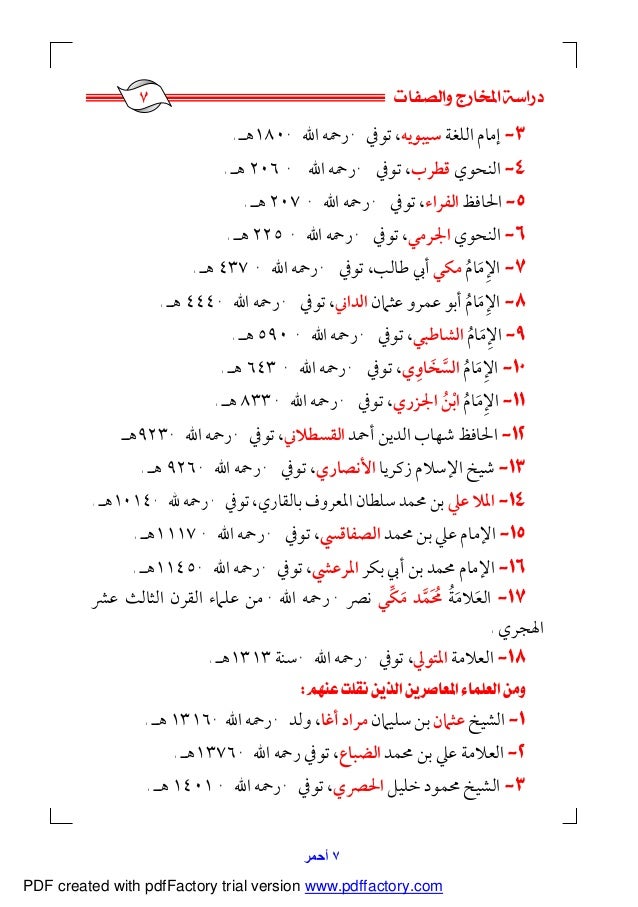 دراسة المخارج والصفات ٧
٣- إمام اللغة سيبويه، توفي ٠رحمه الله ٠١٨٠هـ .
٤- النحوي قطرب، توفي ٠رحمه الله ٠ ٢٠٦ هـ .
٥- الحافظ الفراء، توفي ٠رحمه الله ٠ ٢٠٧ هـ .
٦- النحوي الجرمي، توفي ٠رحمه الله ٠ ٢٢٥ هـ .
٧- الإِمَامُ مكي أبي طالب، توفي ٠رحمه الله ٠ ٤٣٧ هـ .
٨- الإِمَامُ أبو عمرو عثمان الداني، توفي ٠رحمه الله ٠٤٤٤ هـ .
٩- الإِمَامُ الشاطبي، توفي ٠رحمه الله ٠ ٥٩٠ هـ .
١٠- الإِمَامُ السَّخَاوِي، توفي ٠رحمه الله ٠ ٦٤٣ هـ .
١١- الإِمَامُ ابْنُ الجزري، توفي ٠رحمه الله ٠ ٨٣٣ هـ .
١٢- الحافظ شهاب الدين أحمد القسطلاني، توفي ٠رحمه الله ٠٩٢٣هـ
١٣- شيخ الإسلام زكريا الأنصاري، توفي ٠رحمه الله ٠٩٢٦ هـ .
١٤- الملا علي بن محمد سلطان المعروف بالقاري، توفي ٠رحمه لله ٠١٠١٤هـ .
١٥- الإمام علي بن محمد الصفاقسي، توفي ٠رحمه الله ٠ ١١١٧هـ .
١٦- الإمام محمد بن أبي بكر المرعشي، توفي ٠رحمه الله ٠١١٤٥ هـ .
١٧- العَلامَةُ مُحَمَّد مَكِّي نصر ٠رحمه الله ٠ من علماء القرن الثالث عشر
الهجري .
١٨- العلامة المتولي، توفي ٠رحمه الله ٠سنة ١٣١٣هـ .
ومن العلماء المعاصرين الذين نقلت عنهم:
١- الشيخ عثمان بن سليمان مراد أغا، ولد ٠رحمه الله ٠١٣١٦ هـ .
٢- العلامة علي بن محمد الضباع، توفي رحمه الله ٠١٣٧٦هـ .
٣- الشيخ محمود خليل الحصري، توفي ٠رحمه الله ٠ ١٤٠١ هـ .
٧ أحمر
PDF created with pdfFactory trial version www.pdffactory.com